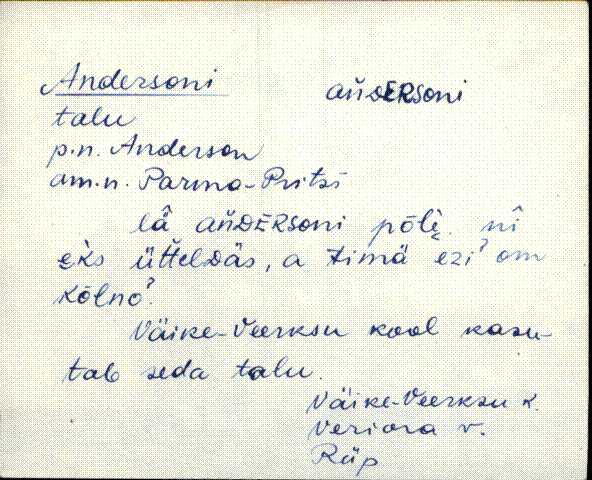 Andersoni
ańDERSoni
talu
p.n. Anderson
am.n. Parma-Pritsi
lǟ ańDĒRSoni põlė. nī̂
eks üťťelDäs, a timä ezi? om
kōlnǒ?.
Väike-Veerksu kool kasu-
tab seda talu.
Väike-Veerksu k.
Veriora v.
Räp